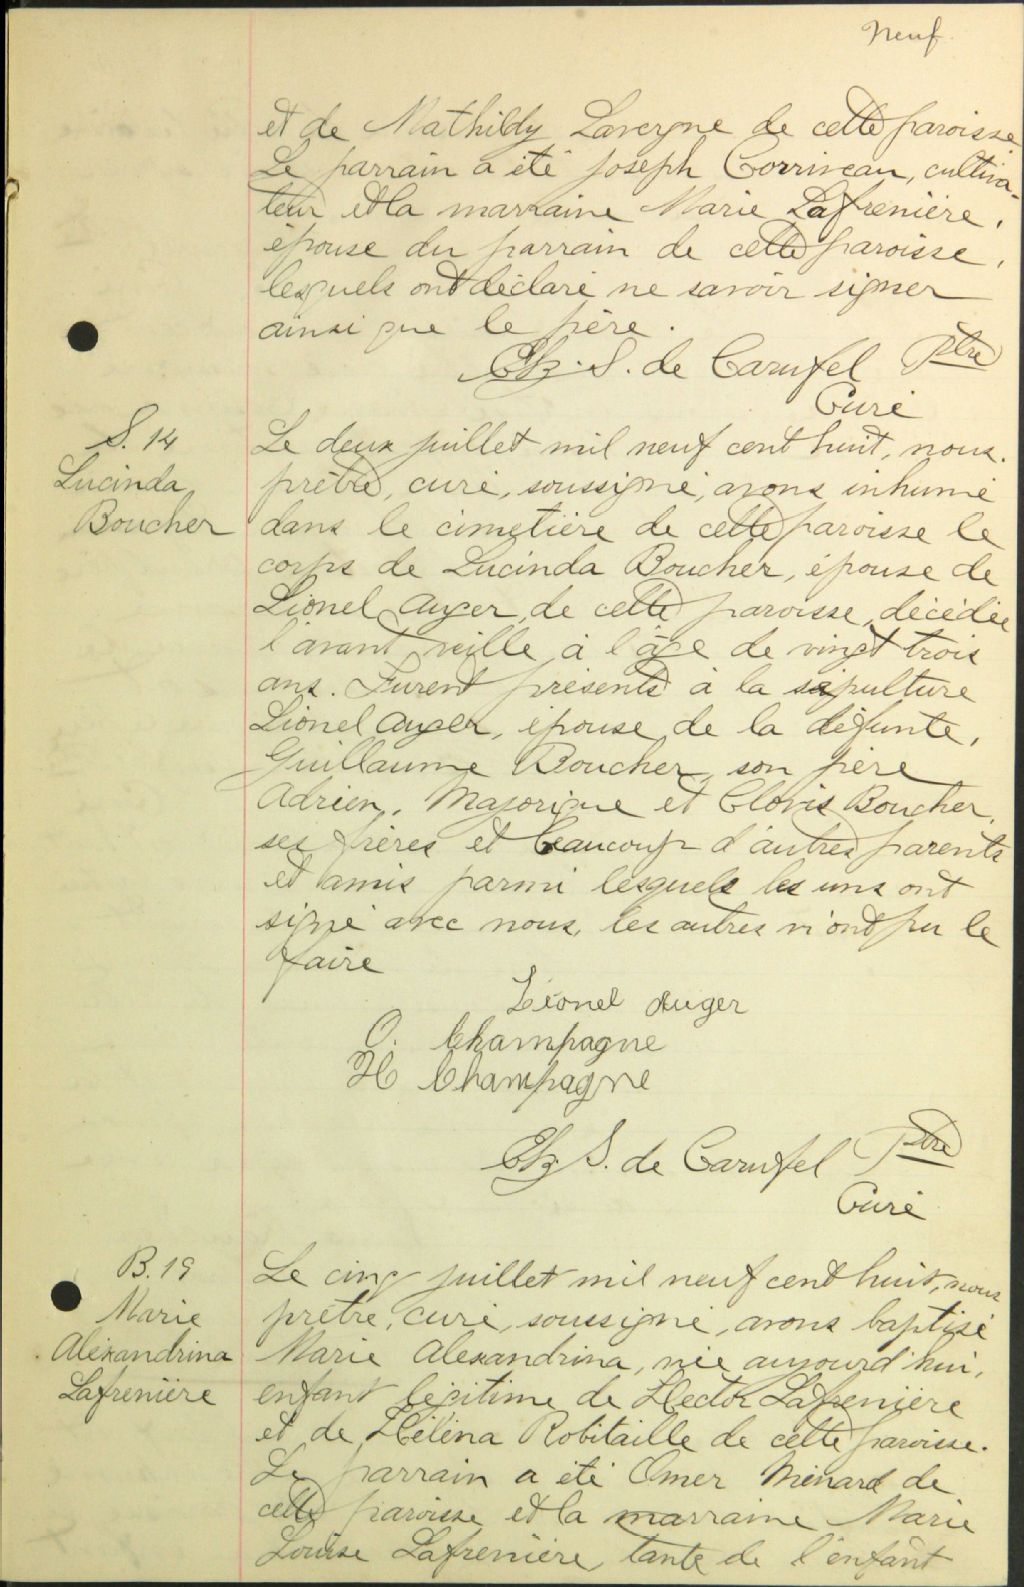 Neuf.
et de Mathildy Lavergne de cette paroisse
Le parrain a été Joseph Corriveau, cultiva-
teur et la marraine Marie Lafrenière,
épouse du parrain de cette paroisse,
lesquels ont déclaré ne savoir signer
ainsi que le père.
Chs. S. de Carufel Ptre
Curé
S. 14
Lucinda
Boucher
Le deux juillet mil neuf cent huit, nous.
prêtre, curé, soussigné, avons inhumé
dans le cimetière de cette paroisse le
corps de Lucinda Boucher, épouse de
Lionel Auger de cette paroisse, décédée
l'avant veille à l'âge de vingt trois
ans. Furent présents à la sépulture
Lionel Auger, épouse de la défunte,
Guillaume Boucher, son père
Adrien, Majorique et Clovis Boucher,
ses frères et beaucoup d'autres parents
et amis parmi lesquels les uns ont
signé avec nous, les autres n'ont pu le
faire
Lionel Auger
O. Champagne
H Champagne
Chs S. de Carufel Ptre
Curé
B. 19
Marie
Alexandrina
Lafrenière
Le cinq juillet mil neuf cent huit, nous
prêtre, curé, soussigné, avons baptisé
Marie Alexandrina, née aujourd'hui,
enfant légitime de Hector Lafrenière
et de Héléna Robitaille de cette paroisse.
Le parrain a été Omer Ménard de
cette paroisse et la marraine Marie
Louise Lafrenière, tante de l'enfant